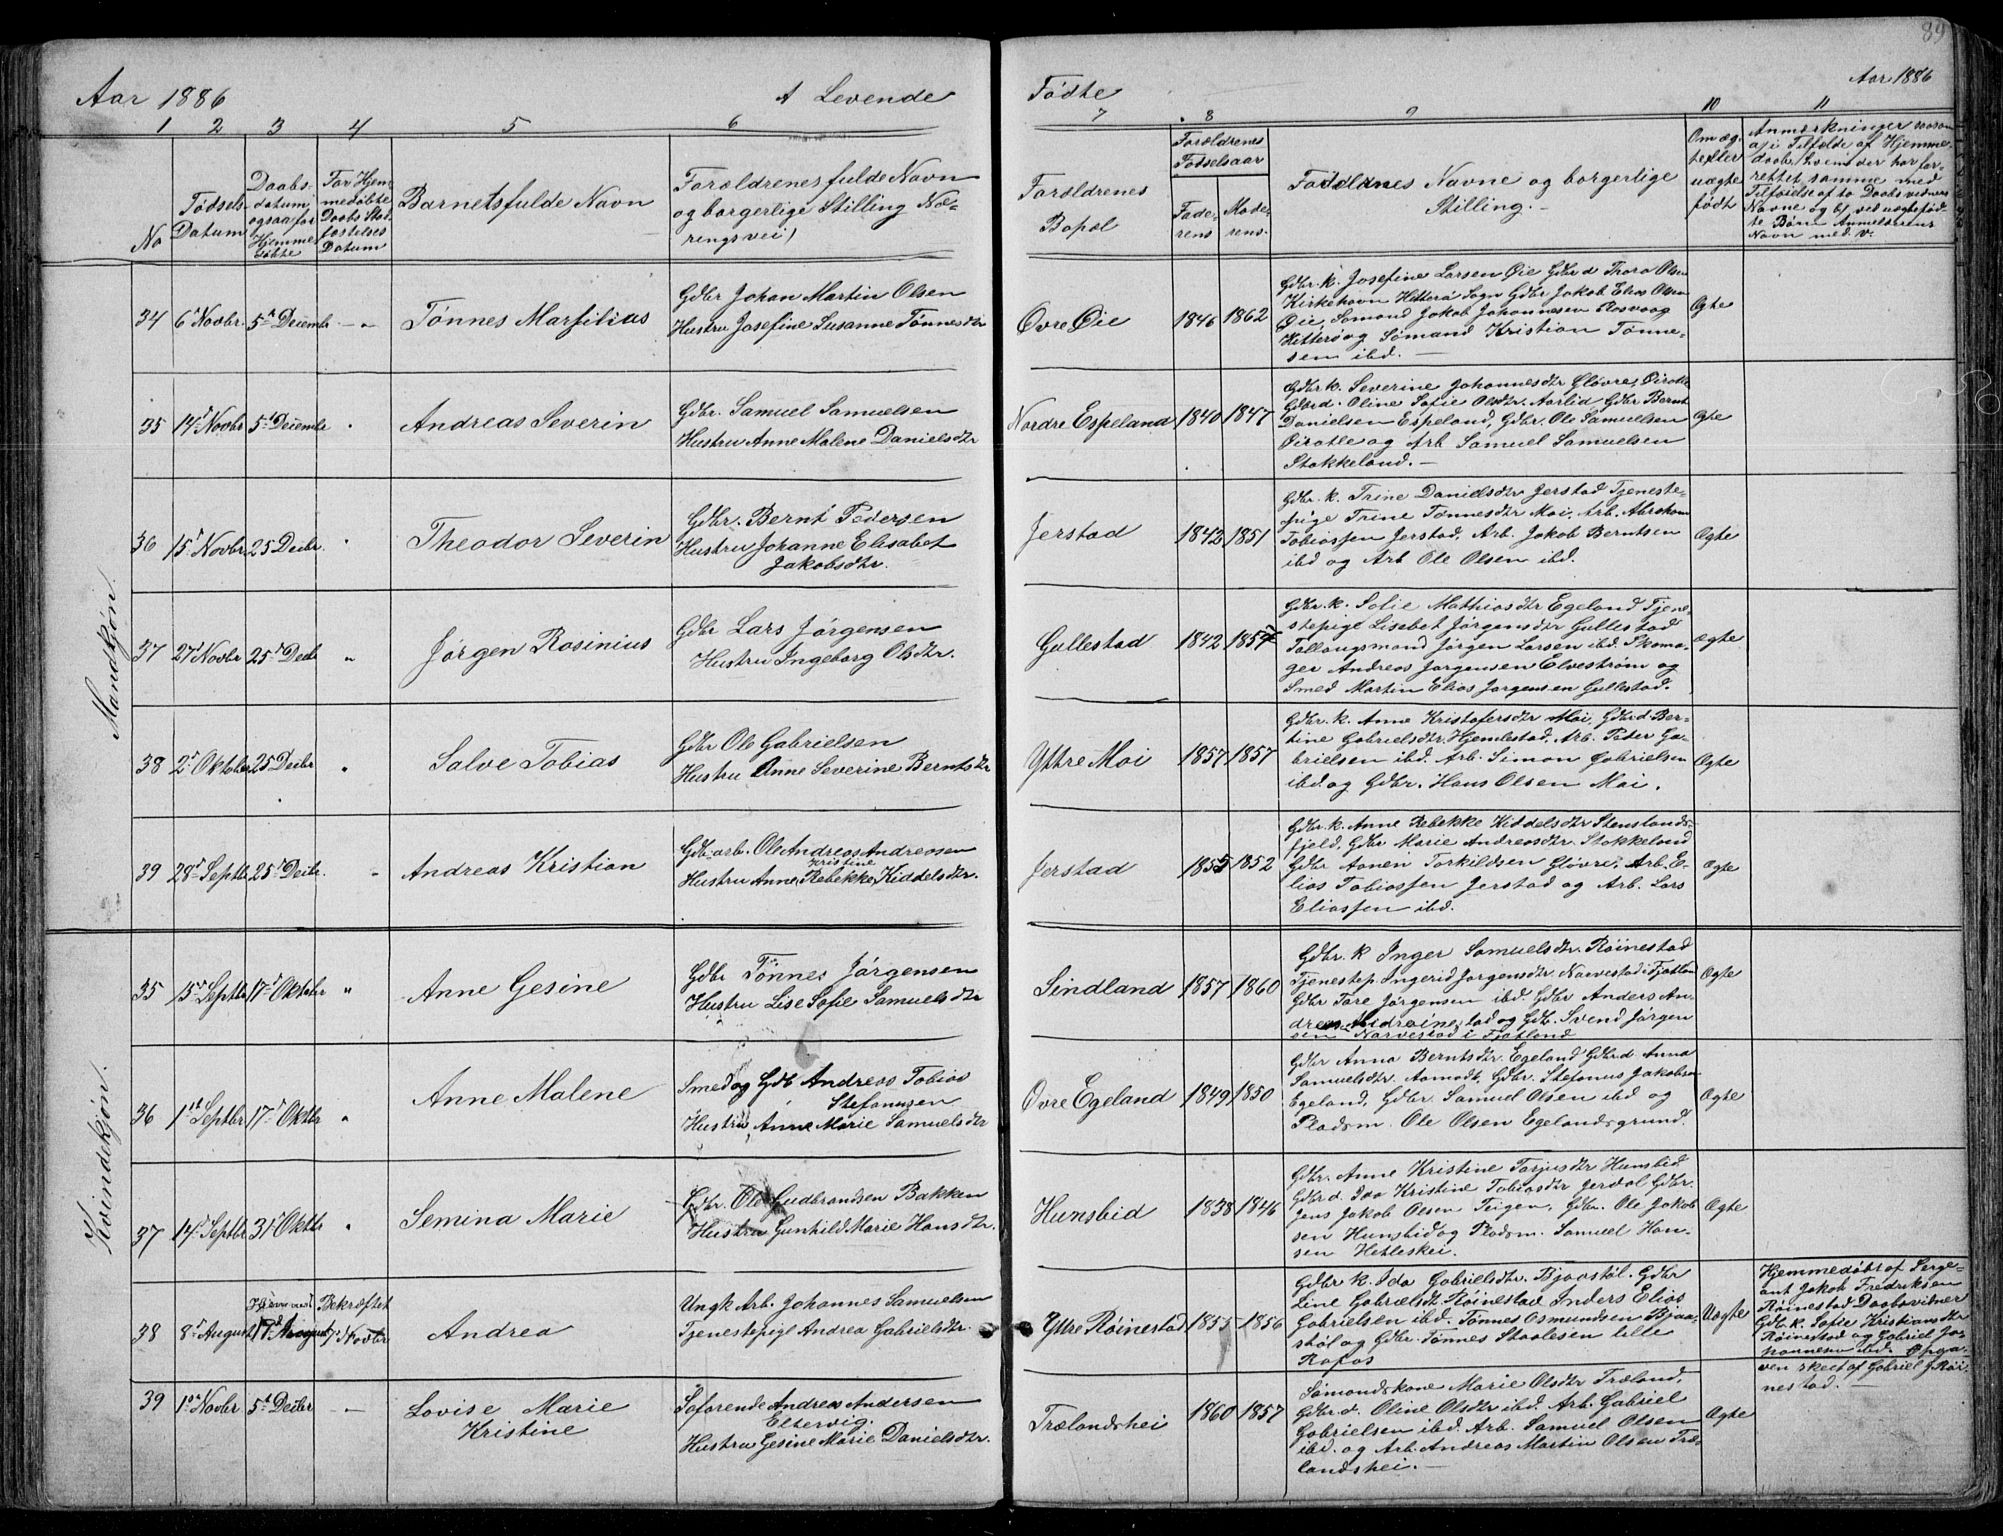 89
Aar 1886
A Levende
Fødte
Aar 1886
1 2 3 4 5 6
7 8 9 10 11
No
Fødsels
Datum
Daabs-
datum
ogsaa for
Hjemme
døbte
For Hjem
medøbte
Daabs Stad
fæstelses
Datum
Barnets fulde Navn
Forældrenes fulde Navn
og borgerlige Stilling Næ-
ringsvei)
Forældrenes
Bopæl
Forældrenes
Fødselsaar
Fade-
rens
Mode-
rens.
Faddernes Navne og borgerlige
Stilling.
Om æg-
te eller
uægte
født
Anmærkninger saasom
a) i Tilfælde af Hjemme-
daab, hvem der har for-
rettet samme med
Tilføielse af to Daabsvidners
Navne og b) ved uægte fød-
te Børn Anmelderens
Navn med. v.
Mandkjøn.
34 6' Novbr. 5' Decembr — „
Tønnes Marsilius
Gdbr Johan Martin Olsen
Hustru Josefine Susanne Tønnesdtr
Øvre Øie 1846 1862
Gdbr. k. Josefine Larsen Øie Gdbr d Thora Olsen
Kirkehavn Hitterø Sogn Gdbr Jakob Elias Olsen
Øie, Sømand Jakob Johannesen Rosvaag
Hitterø og Sømand Kristian Tønne-
sen ibd. —
Ægte
35 14' Novbr 5' Decembr „
Andreas Severin
Gdbr. Samuel Samuelsen
Hustru Anne Malene Danielsdtr
Nordre Espeland 1840 1847
Gdbr k. Severine Johannesdtr Gløvre,
Gdbr d. Oline Sofie Olsdtr. Aarlid Gdbr Bernt
Danielsen Espeland, Gdbr. Ole Samuelsen
og Arb Samuel Samuelsen
Stokkeland. —
Ægte
36 15' Novbr 25 Decbr. „
Theodor Severin
Gdbr. Bernt Pedersen
Hustru Johanne Elisabet
Jakobsdtr.
Jerstad 1842 1851
Gdbr. k. Trine Danielsdtr Jerstad Tjeneste-
pige Trine Tønnesdtr Moi, Arb. Abraham
Tobiassen Jerstad, Arb. Jakob Berntsen
ibd og Arb Ole Olsen ibd.
Ægte
37 27' Novbr 25' Decbr „
Jørgen Rosinius
Gdbr Lars Jørgensen
Hustru Ingeborg Olsdtr.
Gullestad 1842 1857
Gdbr. k. Sofie Mathiasdtr Egeland Tjene
stepige Lisebet Jørgensdtr Gullestad
Føllaugsmand Jørgen Larsen ibd. Skoma-
ger Andreas Jørgensen Elvestrøm og
Smed Martin Elias Jørgensen Gullestad.
ægte
38 2' Oktober 25 Decbr „
Salve Tobias
Gdbr Ole Gabrielsen
Hustru Anne Severine Berntsdtr
Yttre Moi 1857 1857
Gdbr. k. Anne Kristofersdtr Moi, Gdbr d. Ber-
tine Gabrielsdtr. Hjemlestad, Arb. Peder Ga-
brielsen ibd. Arb. Simon Gabrielsen
ibd. og Gdbr. Hans Olsen Moi.
Ægte
39 28' Septbr 25' Decbr. „
Andreas Kristian
Gdb. arb. Ole Andreas Andreasen
Kristine
Hustru Anne Rebekke Kiddelsdtr.
Jerstad 1855 1852
Gdbr. k. Anne Rebekke Kiddelsdtr Stenslands-
fjeld, Gdbr Marie Andreasdtr. Stokkeland
Gdbr Aanen Torkildsen Gløvre, Arb. E-
lias Tobiassen Jerstad og Arb. Lars
Eliassen ibd.
Ægte
Kvindekjøn.
35 15' Septbr 17' Oktobr „
Anne Gesine
Gdbr Tønnes Jørgensen
Hustru Lise Sofie Samuelsdtr
Sindland 1857 1860
Gdbr. k Inger Samuelsdtr. Røinestad
Tjenestep. Ingerid Jørgensdtr. Narvestad i Fjotland
Gdbr Tore Jørgensen ibd. Gdbr Anders An-
dreas Midrøinestad og Gdb. Svend Jørgen
sen Narvestad i Fjotland
Ægte
36 1ste Septbr 17' Oktbr „
Anne Malene
Smed og Gdb Andreas Tobias
Stefanusen
Hustru Anne Marie Samuelsdtr
Øvre Egeland 1849 1850
Gdbr Anna Berntsdtr. Egeland Gdbr d Anna
Samuelsdtr. Aamodt, Gdbr. Stefanus Jakobsen
Egeland, Gdbr. Samuel Olsen ibd og
Pladsm. Ole Olsen Egelandsgrund.
Ægte
37 14' Septbr 31' Oktbr „
Semina Marie
Gdbr. Ole Gudbrandsen Bakken
Hustru Gunhild Marie Hansdtr.
Hunsbid 1838 1846
Gdbr. Anne Kristine Tarjusdtr Hunsbid
Gdbr d. Ida Kristine Tobiasdtr Jerdal Gdbr.
Jens Jakob Olsen Teigen, Gdbr. Ole Jakob
sen Hunsbid og Pladsm. Samuel Han-
sen Hetleskei.
Ægte
38 8' August
Bekræftet
7' Novbr
Andrea
Ungk Arb. Johannes Samuelsen
Tjenestepige Andrea Gabrielsdtr.
Yttre Røinestad 1855 1856
Gdbr k. Ida Gabrielsdtr. Bjaastøl. Gdbr
Line Gabrielsdtr. Røinestad Anders Elias
Gabrielsen ibd. Tønnes Osmundsen Bjaa-
støl og Gdbr. Tønnes Staalesen lille
Rafos
Uægte
Hjemmedøbt af Serge-
ant Jakob Fredriksen
Røinestad Daabsvidner
Gdb. k. Sofie Kristiansdtr
Røinestad og Gabriel Jo-
hannesen ibd. Opga-
ven skeet af Gabriel J. Røi-
nestad. —
39 10' Novbr 5' Decbr —
Lovise Marie
Kristine
Søfarende Andreas Andersen
Eltervig.
Hustru Gesine Marie Danielsdtr.
Trælandshei 1860 1857
Sømandskone Marie Olsdtr Træland,
Gdbr d. Oline Olsdtr ibd. Arb. Gabriel
Gabrielsen ibd. Arb. Samuel Olsen
ibd. og Arb. Andreas Martin Olsen Træ-
landshei. —
Ægte